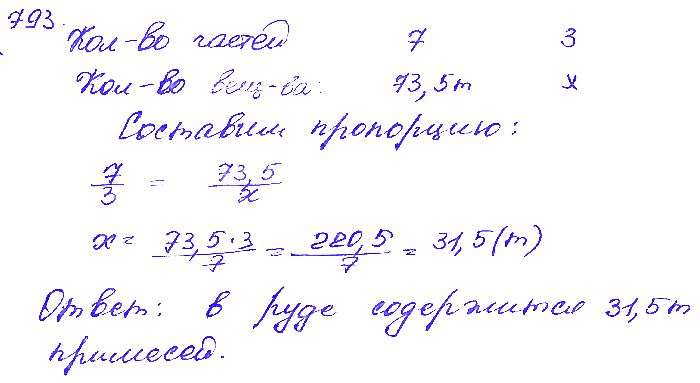 793.
Кол-во частей 7 3
Кол-во вещ-ва: 73,5т x
Составим пропорцию:
7/3 = 73,5/x
x = 73,5·3/7 = 220,5/7 = 31,5(т)
Ответ: в руде содержится 31,5т
примесей.